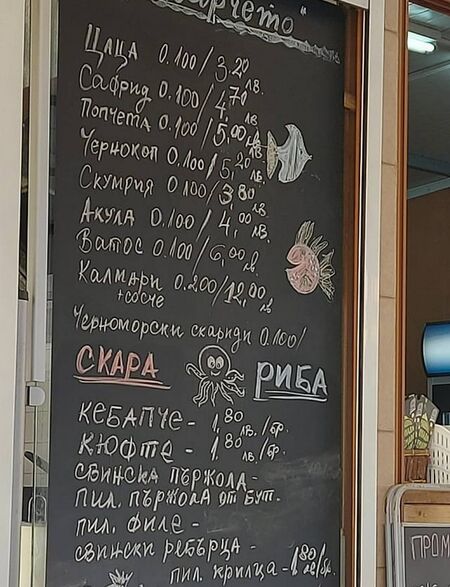 Цаца 0.100/3,20 лв.
Сафрид 0.100/4,70 лв.
Попчета 0.100/5,00 лв.
Чернокоп 0.100/5,20 лв.
Скумрия 0.100/3,80 лв.
Акула 0.100/4,00 лв.
Ватос 0.100/6,00 лв
Калмари 0.200/12,00 лв
+сосче
Черноморски скариди 0.100/
СКАРА РИБА
КЕБАПЧЕ - 1,80 лв./бр.
КЮФТЕ - 1,80 лв./бр.
СВИНСКА ПЪРЖОЛА -
ПИЛ. ПЪРЖОЛА ОТ БУТ -
ПИЛ. ФИЛЕ -
СВИНСКИ РЕБЪРЦА -
ПИЛ. КРИЛЦА - 1,80 лв/бр.
ПРОМ